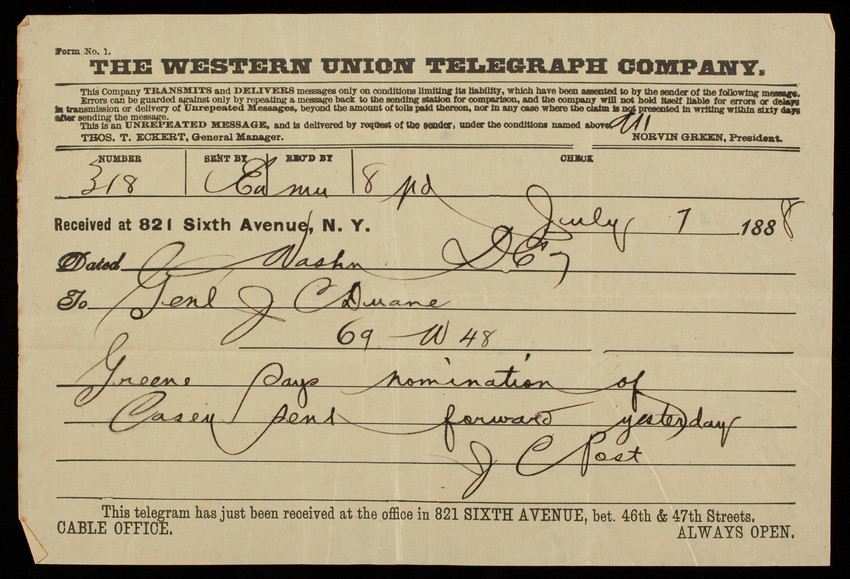 Form No. 1.
THE WESTERN UNION TELEGRAPH COMPANY.
This Company TRANSMITS and DELIVERS messages only on conditions limiting its liability, which have been assented to by the sender of the following message.
Errors can be guarded against only by repeating a message back to the sending station for comparison, and the company will not hold itself liable for errors or delays
in transmission or delivery of Unrepeated Messages, beyond the amount of tolls paid thereon, nor in any case where the claim is not presented in writing within sixty days
after sending the message.
This is an UNREPEATED MESSAGE, and is delivered by request of the sender, under the conditions named above.
THOS. T. ECKERT, General Manager. NORVIN GREEN, President.
NUMBER SENT BY REC'D BY CHECK
318 Ea mu 8 pd
July 7 1888
Received at 821 Sixth Avenue, N. Y.
Dated Washn DC 7
To Genl J C Duane
69 W 48
Greene says nomination of
Casey send forward yesterday
J C Post
This telegram has just been received at the office in 821 SIXTH AVENUE, bet. 46th & 47th Streets.
CABLE OFFICE. ALWAYS OPEN.